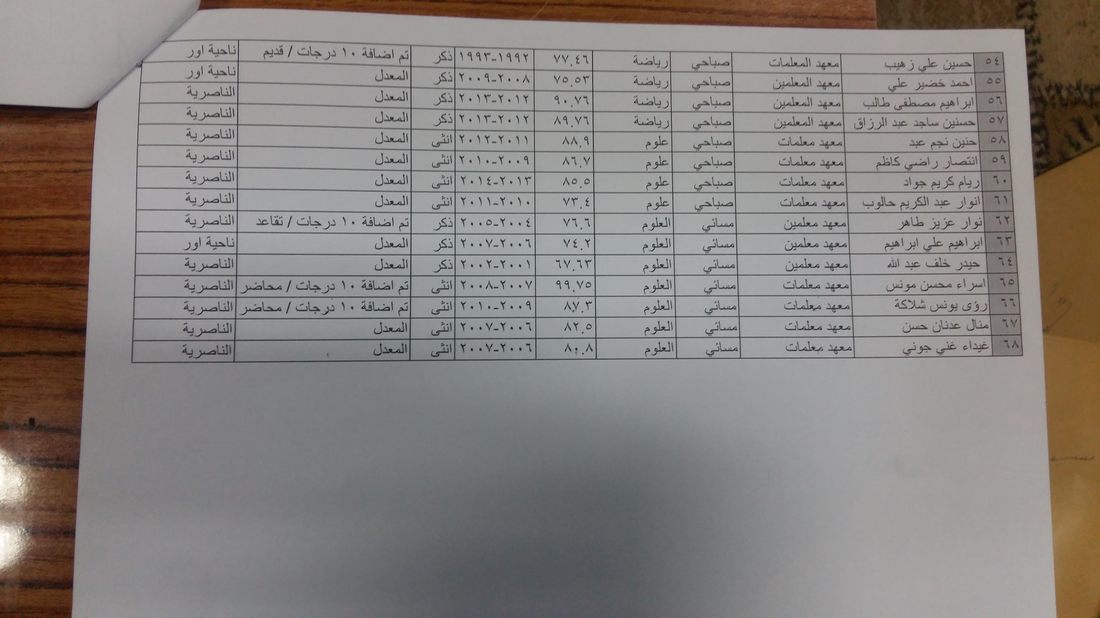 ٥٤ حسين علي زهيب معهد المعلمات صباحي رياضة ٧٧.٤٦ ١٩٩٢-١٩٩٣ ذكر تم اضافة ١٠ درجات / قديم ناحية اور
٥٥ احمد خضير علي معهد المعلمين صباحي رياضة ٧٥.٥٣ ٢٠٠٨-٢٠٠٩ ذكر المعدل ناحية اور
٥٦ ابراهيم مصطفى طالب معهد المعلمين صباحي رياضة ٩٠.٧٦ ٢٠١٢-٢٠١٣ ذكر المعدل الناصرية
٥٧ حسنين ساجد عبد الرزاق معهد المعلمين صباحي رياضة ٨٩.٧٦ ٢٠١٢-٢٠١٣ ذكر المعدل الناصرية
٥٨ حنين نجم عبد معهد معلمات صباحي علوم ٨٨.٩ ٢٠١١-٢٠١٢ انثى المعدل الناصرية
٥٩ انتصار راضي كاظم معهد معلمات صباحي علوم ٨٦.٧ ٢٠٠٩-٢٠١٠ انثى المعدل الناصرية
٦٠ ريام كريم جواد معهد معلمات صباحي علوم ٨٥.٥ ٢٠١٣-٢٠١٤ انثى المعدل الناصرية
٦١ انوار عبد الكريم حالوب معهد معلمات صباحي علوم ٧٣.٤ ٢٠١٠-٢٠١١ انثى المعدل الناصرية
٦٢ نوار عزيز طاهر معهد معلمين مسائي العلوم ٧٦.٦ ٢٠٠٤-٢٠٠٥ ذكر تم اضافة ١٠ درجات / تقاعد الناصرية
٦٣ ابراهيم علي ابراهيم معهد معلمين مسائي العلوم ٧٤.٢ ٢٠٠٦-٢٠٠٧ ذكر المعدل ناحية اور
٦٤ حيدر خلف عبد الله معهد معلمين مسائي العلوم ٦٧.٦٣ ٢٠٠١-٢٠٠٢ ذكر المعدل الناصرية
٦٥ اسراء محسن مونس معهد معلمات مسائي العلوم ٩٩.٧٥ ٢٠٠٧-٢٠٠٨ انثى تم اضافة ١٠ درجات / محاضر الناصرية
٦٦ رؤى يونس شلاكة معهد معلمات مسائي العلوم ٨٧.٣ ٢٠٠٩-٢٠١٠ انثى تم اضافة ١٠ درجات / محاضر الناصرية
٦٧ منال عدنان حسن معهد معلمات مسائي العلوم ٨٢.٥ ٢٠٠٦-٢٠٠٧ انثى المعدل الناصرية
٦٨ غيداء غني جوني معهد معلمات مسائي العلوم ٨٠.٨ ٢٠٠٦-٢٠٠٧ انثى المعدل الناصرية